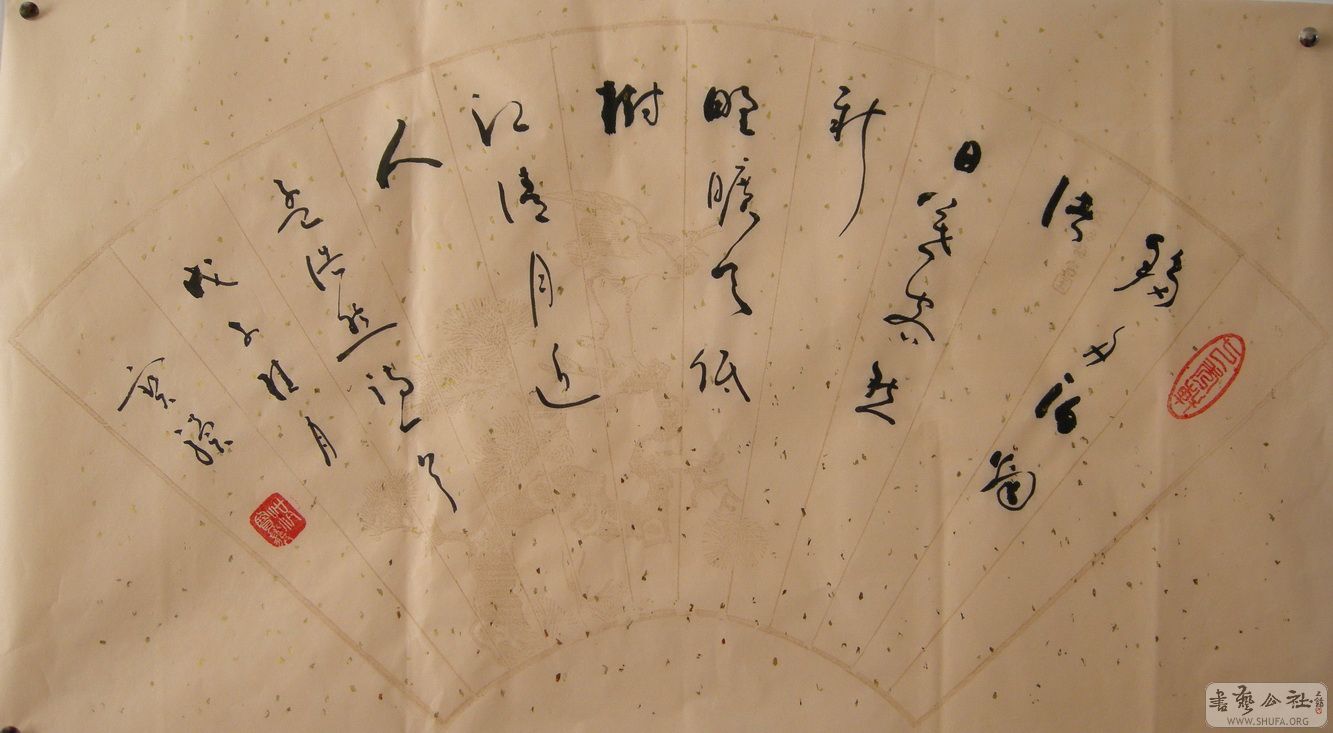 移舟泊烟
渚
日暮客愁
新
野曠天低
樹
江清月近
人
孟浩然詩
戊子桂月
書藝公社
WWW.SHUFA.ORG